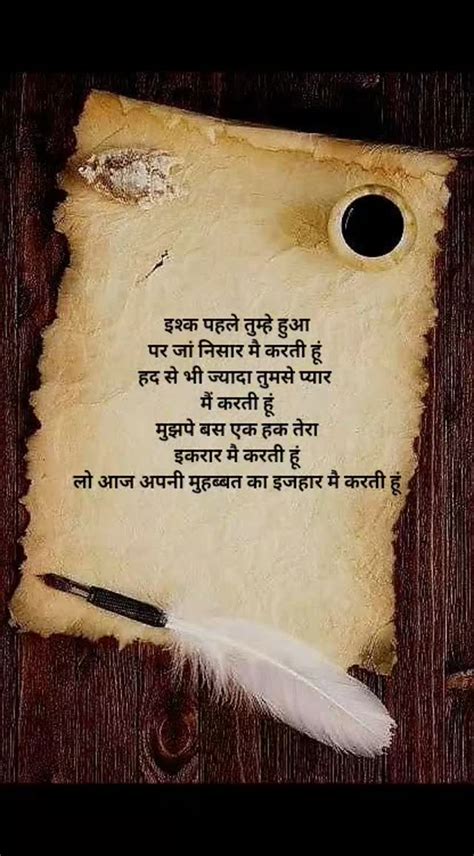 इश्क पहले तुम्हे हुआ
पर जां निसार मै करती हूं
हद से भी ज्यादा तुमसे प्यार
मैं करती हूं
मुझपे बस एक हक तेरा
इकरार मै करती हूं
लो आज अपनी मुहब्बत का इजहार मै करती हूं